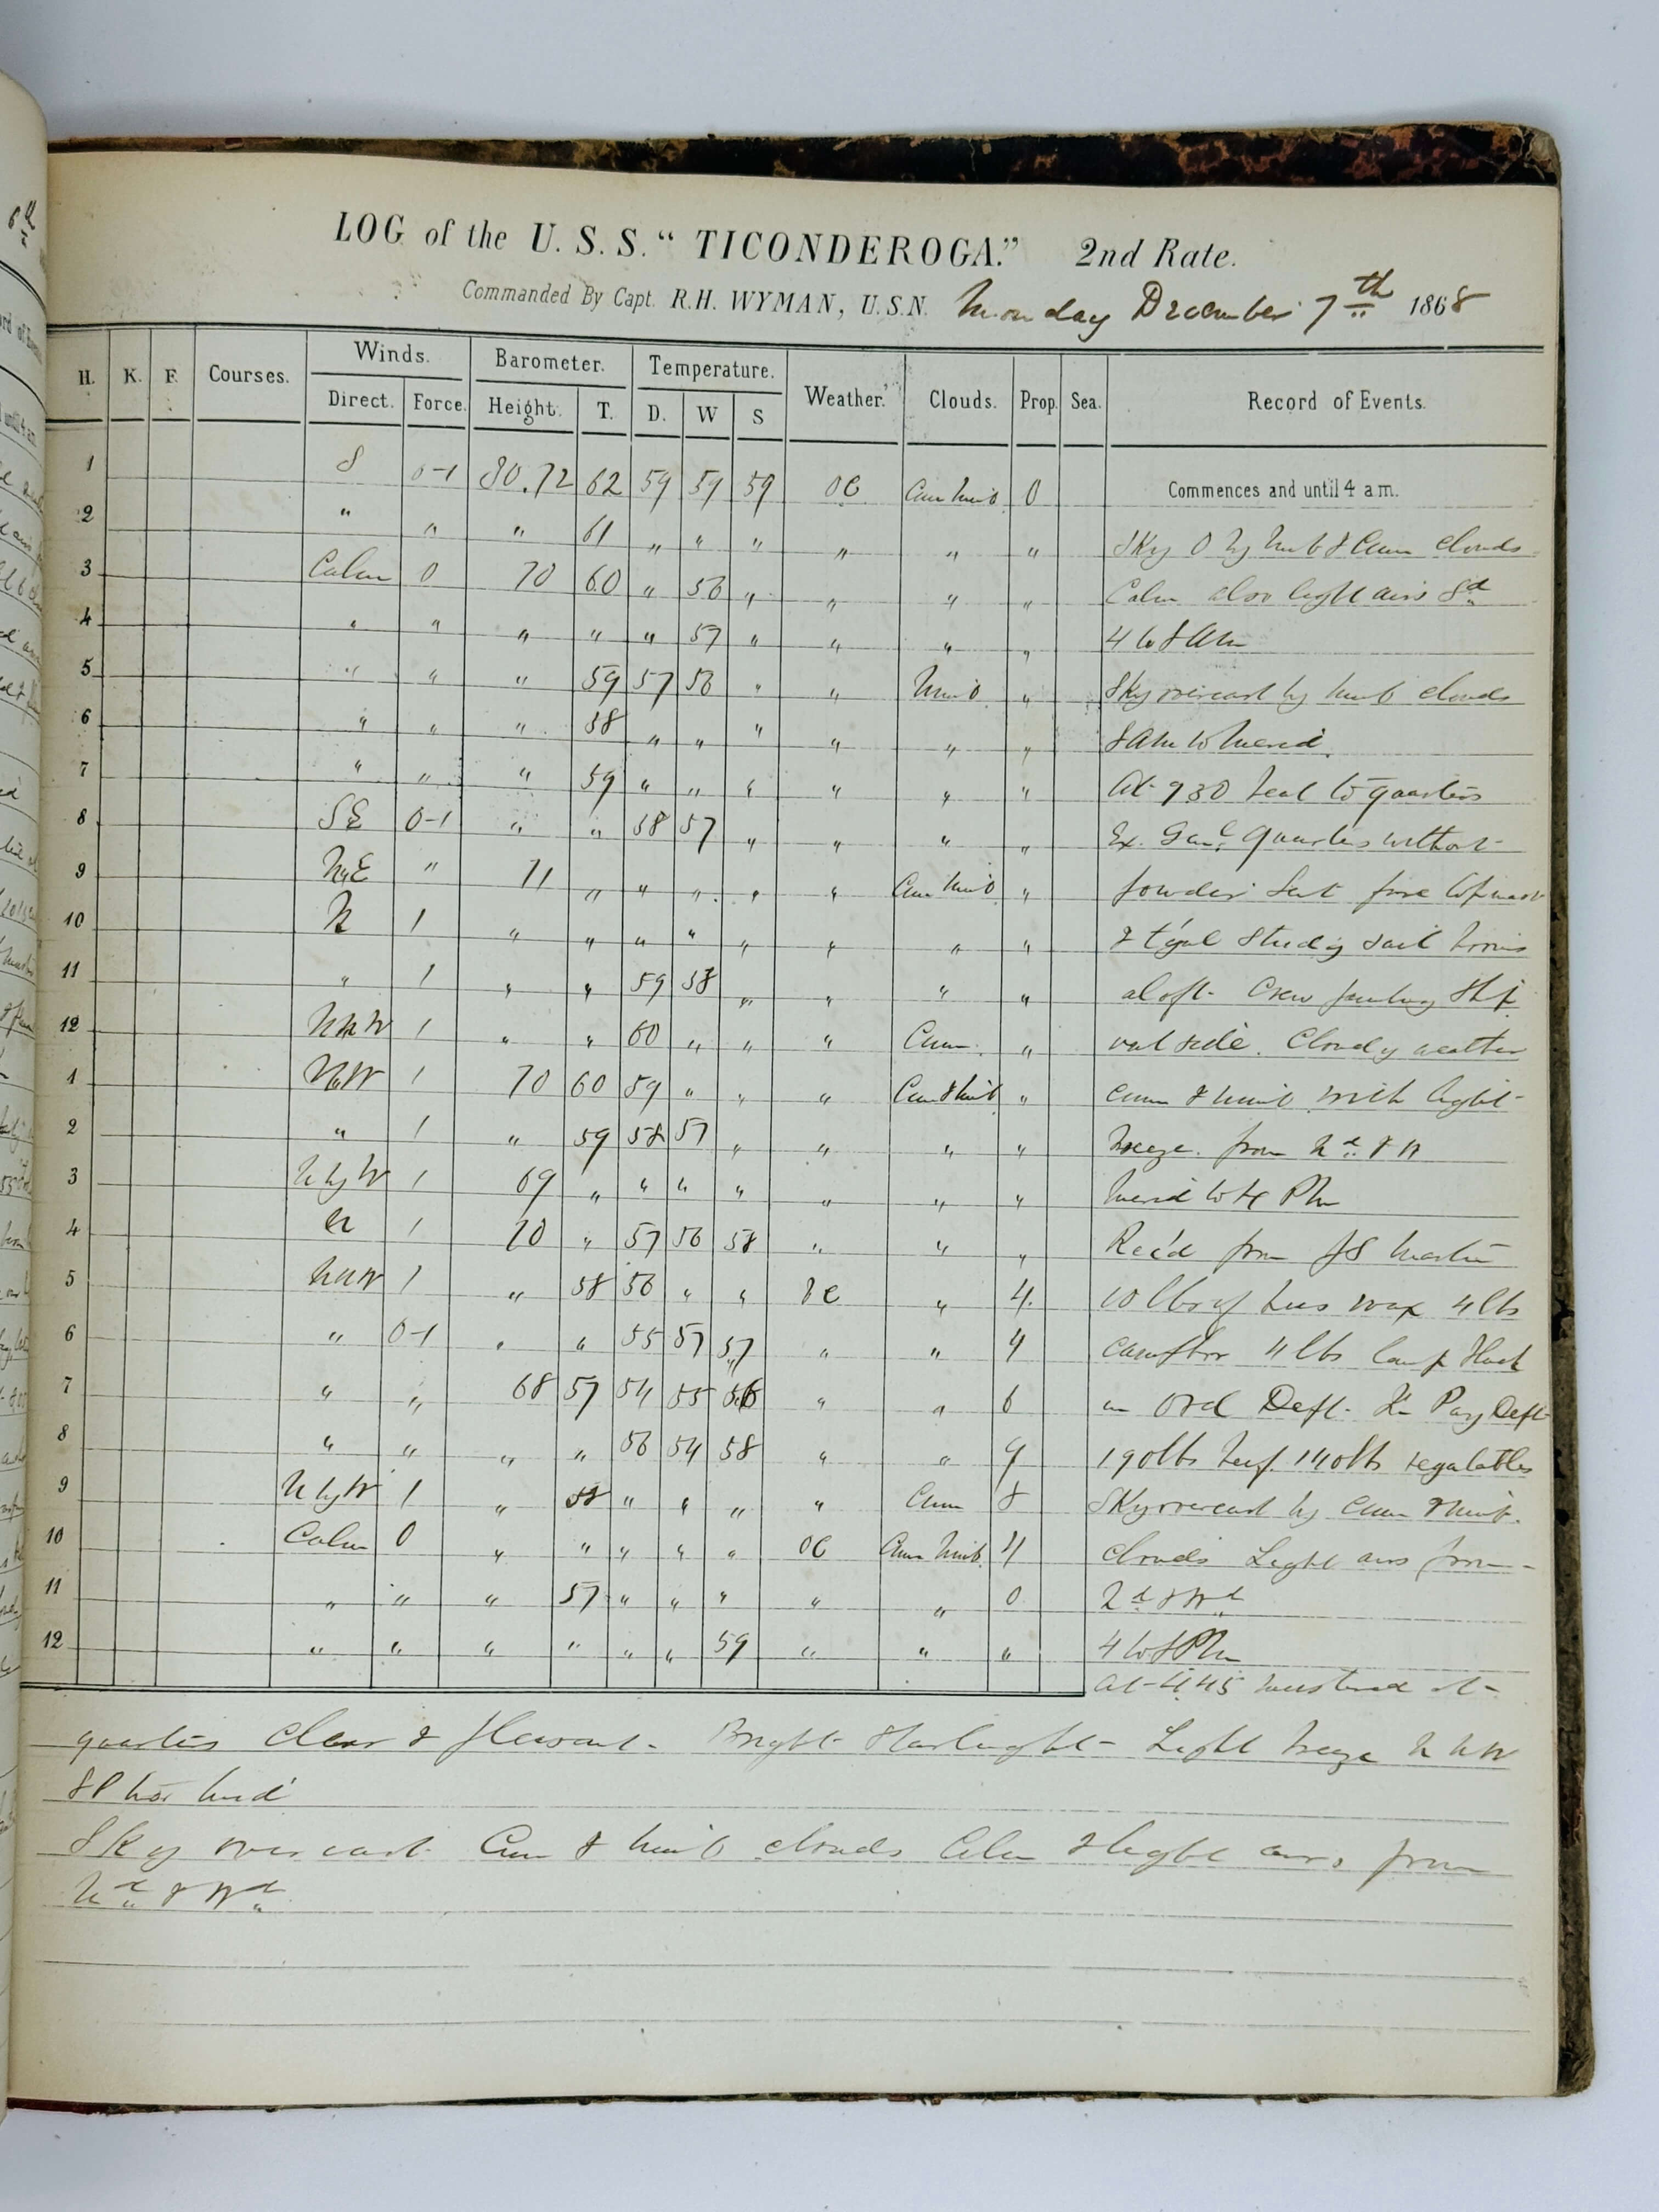 LOG of the U. S. S. "TICONDEROGA." 2nd Rate.
Commanded By Capt. R.H. WYMAN, U.S.N. Monday December 7th 1868
H. K. F. Courses. Winds. Barometer. Temperature. Weather. Clouds. Prop. Sea. Record of Events.
Direct. Force. Height. T. D. W S
1 S 0-1 30.72 62 59 59 59 OC Cum Nimb 0 Commences and until 4 a m.
2 " " " 61 " " " " " " Sky 0 by Nimb & Cum clouds
3 Calm 0 70 60 " 56 " " " " Calm also light airs Sd
4 " " " " " 57 " " " " 4 to 8 AM
5 " " " 59 57 56 " " Nimb " Sky overcast by Nimb clouds
6 " " " 58 " " " " " " 8 AM to Merid.
7 " " " 59 " " " " " " At 9 30 beat to quarters
8 SE 0-1 " " 58 57 " " " " Ex. Genl quarters without
9 NE " 71 " " " " " Cum Nimb " powder Sent fore topmast
10 N 1 " " " " " " " " & t'gal studdg sail booms
11 " 1 " " 59 58 " " " " aloft. Crew painting Ship
12 NNW 1 " " 60 " " " Cum. " outside. Cloudy weather
1 NW 1 70 60 59 " " " Cum & Nimb " cum & nimb with light
2 " 1 " 59 58 57 " " " " breeze from Nd & W
3 N by W 1 69 " " " " " " " Merid to 4 PM
4 N 1 70 " 57 56 58 " " " Rec'd from JS Martin
5 NNW 1 " 58 56 " " bc " 4 10 lbs of bees wax 4 lbs
6 " 0-1 " " 55 57 57 " " 4 camphor 4 lbs lamp black
7 " " 68 57 54 55 56 " " 6 in Ord Dept. In Pay Dept
8 " " " " 56 54 58 " " 9 190 lbs beef. 140 lbs vegatables
9 N by W 1 " 58 " " " " Cum 8 Sky overcast by Cum & Nimb.
10 Calm 0 " " " " " OC Cum Nimb 4 clouds Light airs from
11 " " " 57 " " " " " 0 Nd & Wd
12 " " " " " " 59 " " " 4 to 8 PM
At 4.45 mustered at
quarters Clear & pleasant. Bright Starlight Light breeze N NW
8 P to Mid
Sky overcast Cum & Nimb clouds Calm & light airs from
Nd & Wd